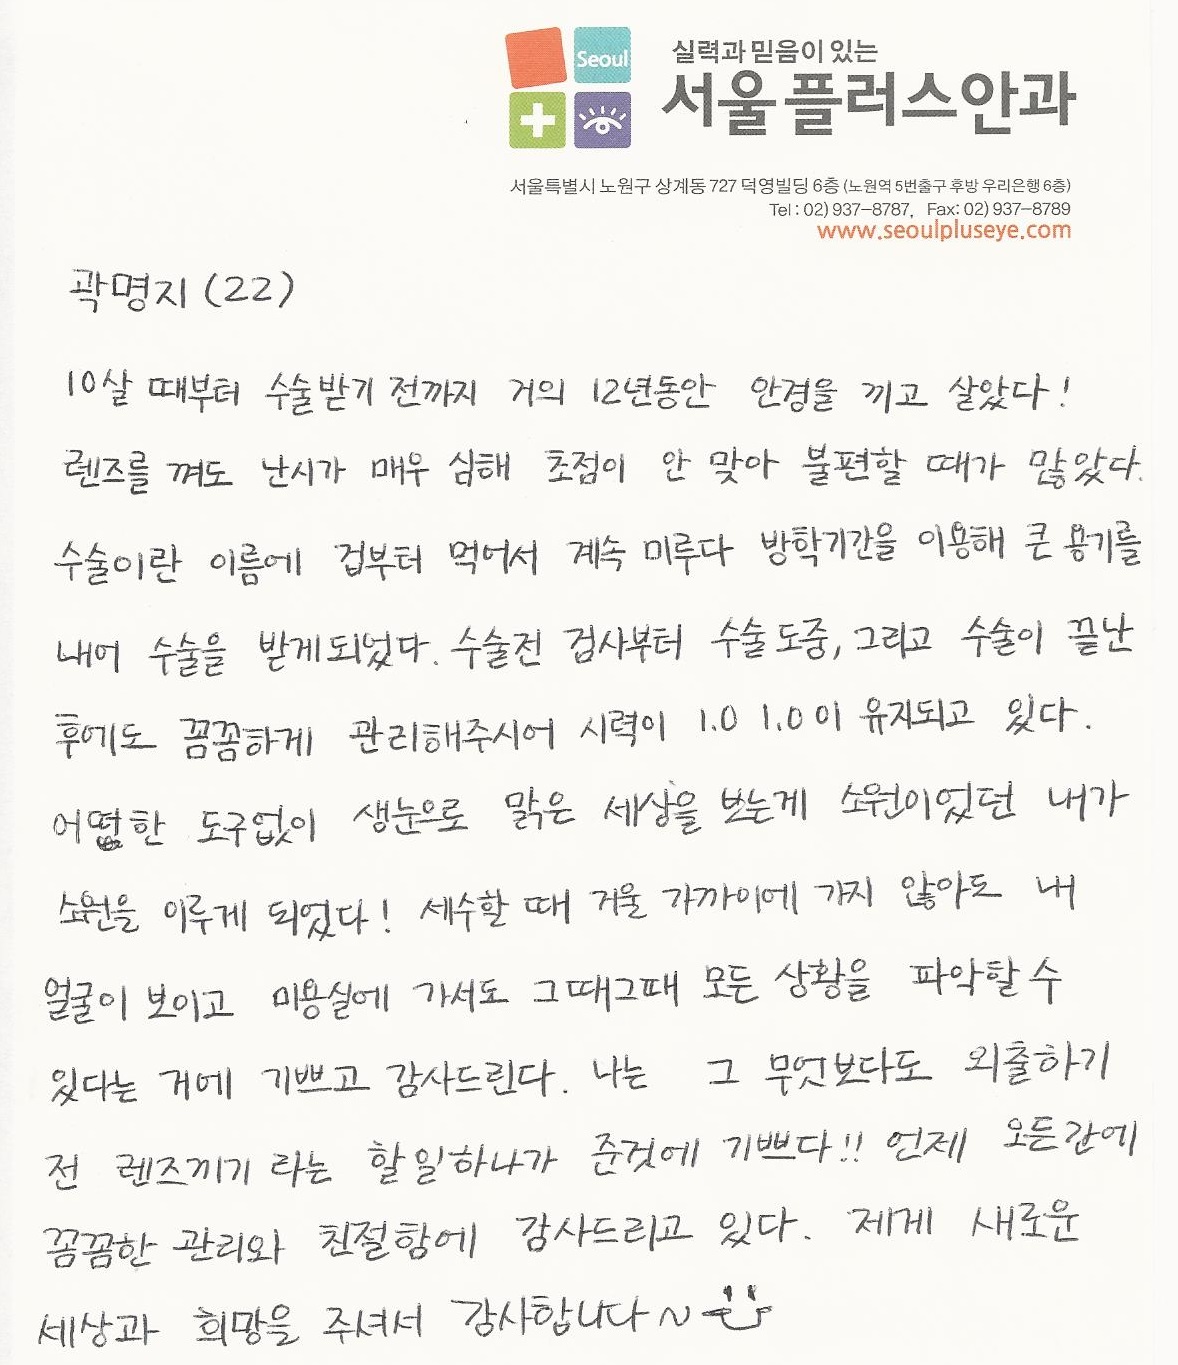 Seoul
실력과 믿음이 있는
서울플러스안과
서울특별시 노원구 상계동 727 덕영빌딩 6층 (노원역 5번출구 후방 우리은행 6층)
Tel : 02) 937-8787, Fax: 02) 937-8789
www.seoulpluseye.com
곽명지 (22)
10살 때부터 수술받기 전까지 거의 12년동안 안경을 끼고 살았다!
렌즈를 껴도 난시가 매우 심해 초점이 안 맞아 불편할 때가 많았다.
수술이란 이름에 겁부터 먹어서 계속 미루다 방학기간을 이용해 큰 용기를
내어 수술을 받게되었다. 수술전 검사부터 수술 도중, 그리고 수술이 끝난
후에도 꼼꼼하게 관리해주시어 시력이 1.0 1.0이 유지되고 있다.
어떠한 도구없이 생눈으로 맑은 세상을 보는게 소원이었던 내가
소원을 이루게 되었다! 세수할 때 거울 가까이에 가지 않아도 내
얼굴이 보이고 미용실에 가서도 그때그때 모든 상황을 파악할 수
있다는 거에 기쁘고 감사드린다. 나는 그 무엇보다도 외출하기
전 렌즈끼기 라는 할 일하나가 준것에 기쁘다!! 언제 오든간에
꼼꼼한 관리와 친절함에 감사드리고 있다. 제게 새로운
세상과 희망을 주셔서 감사합니다~